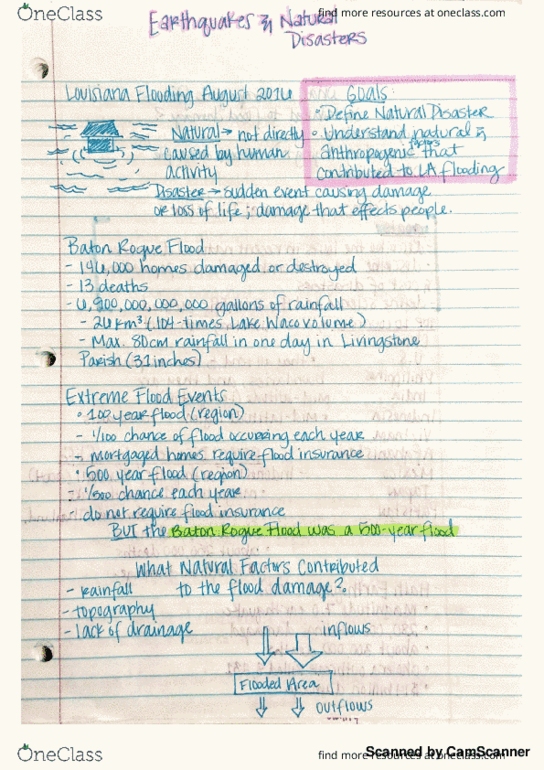 OneClass
find more resources at oneclass.com
Earthquakes & Natural
Disasters
Louisiana Flooding August 2016
Goals:
• Define Natural Disaster
• Understand natural &
anthropogenic factors that
contributed to LA flooding
Natural → not directly
caused by human
activity
Disaster → sudden event causing damage
or loss of life; damage that effects people.
Baton Rogue Flood
- 146,000 homes damaged or destroyed
- 13 deaths
- 6,900,000,000,000 gallons of rainfall
- 26 km³ (104-times Lake Waco volume)
- Max. 80cm rainfall in one day in Livingstone
Parish (31 inches)
Extreme Flood Events
• 100 year flood (region)
- 1/100 chance of flood occurring each year
- mortgaged homes require flood insurance
• 500 year flood (region)
- 1/500 chance each year
- do not require flood insurance
BUT the Baton Rogue Flood was a 500-year flood
What Natural Factors Contributed
to the flood damage?
- rainfall
- topography
- lack of drainage
inflows
Flooded Area
outflows
OneClass
find more resources at oneclass.com
Scanned by CamScanner